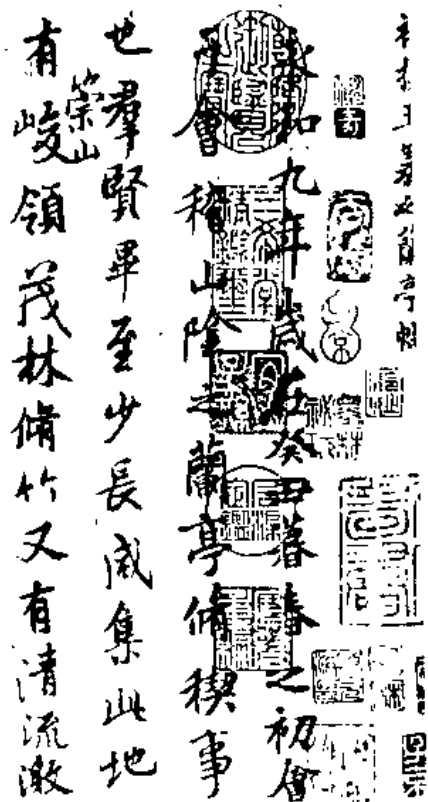 王羲之蘭亭帖
永和九年歲在癸丑暮春之初會
于會稽山陰之蘭亭脩稧事
也羣賢畢至少長咸集此地
有崇山峻領茂林脩竹又有清流激